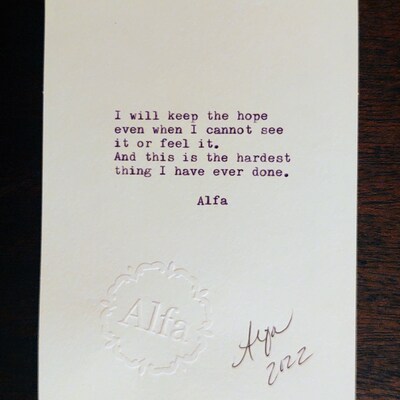 I will keep the hope
even when I cannot see
it or feel it.
And this is the hardest
thing I have ever done.
Alfa
Alfa
Alfa
2022